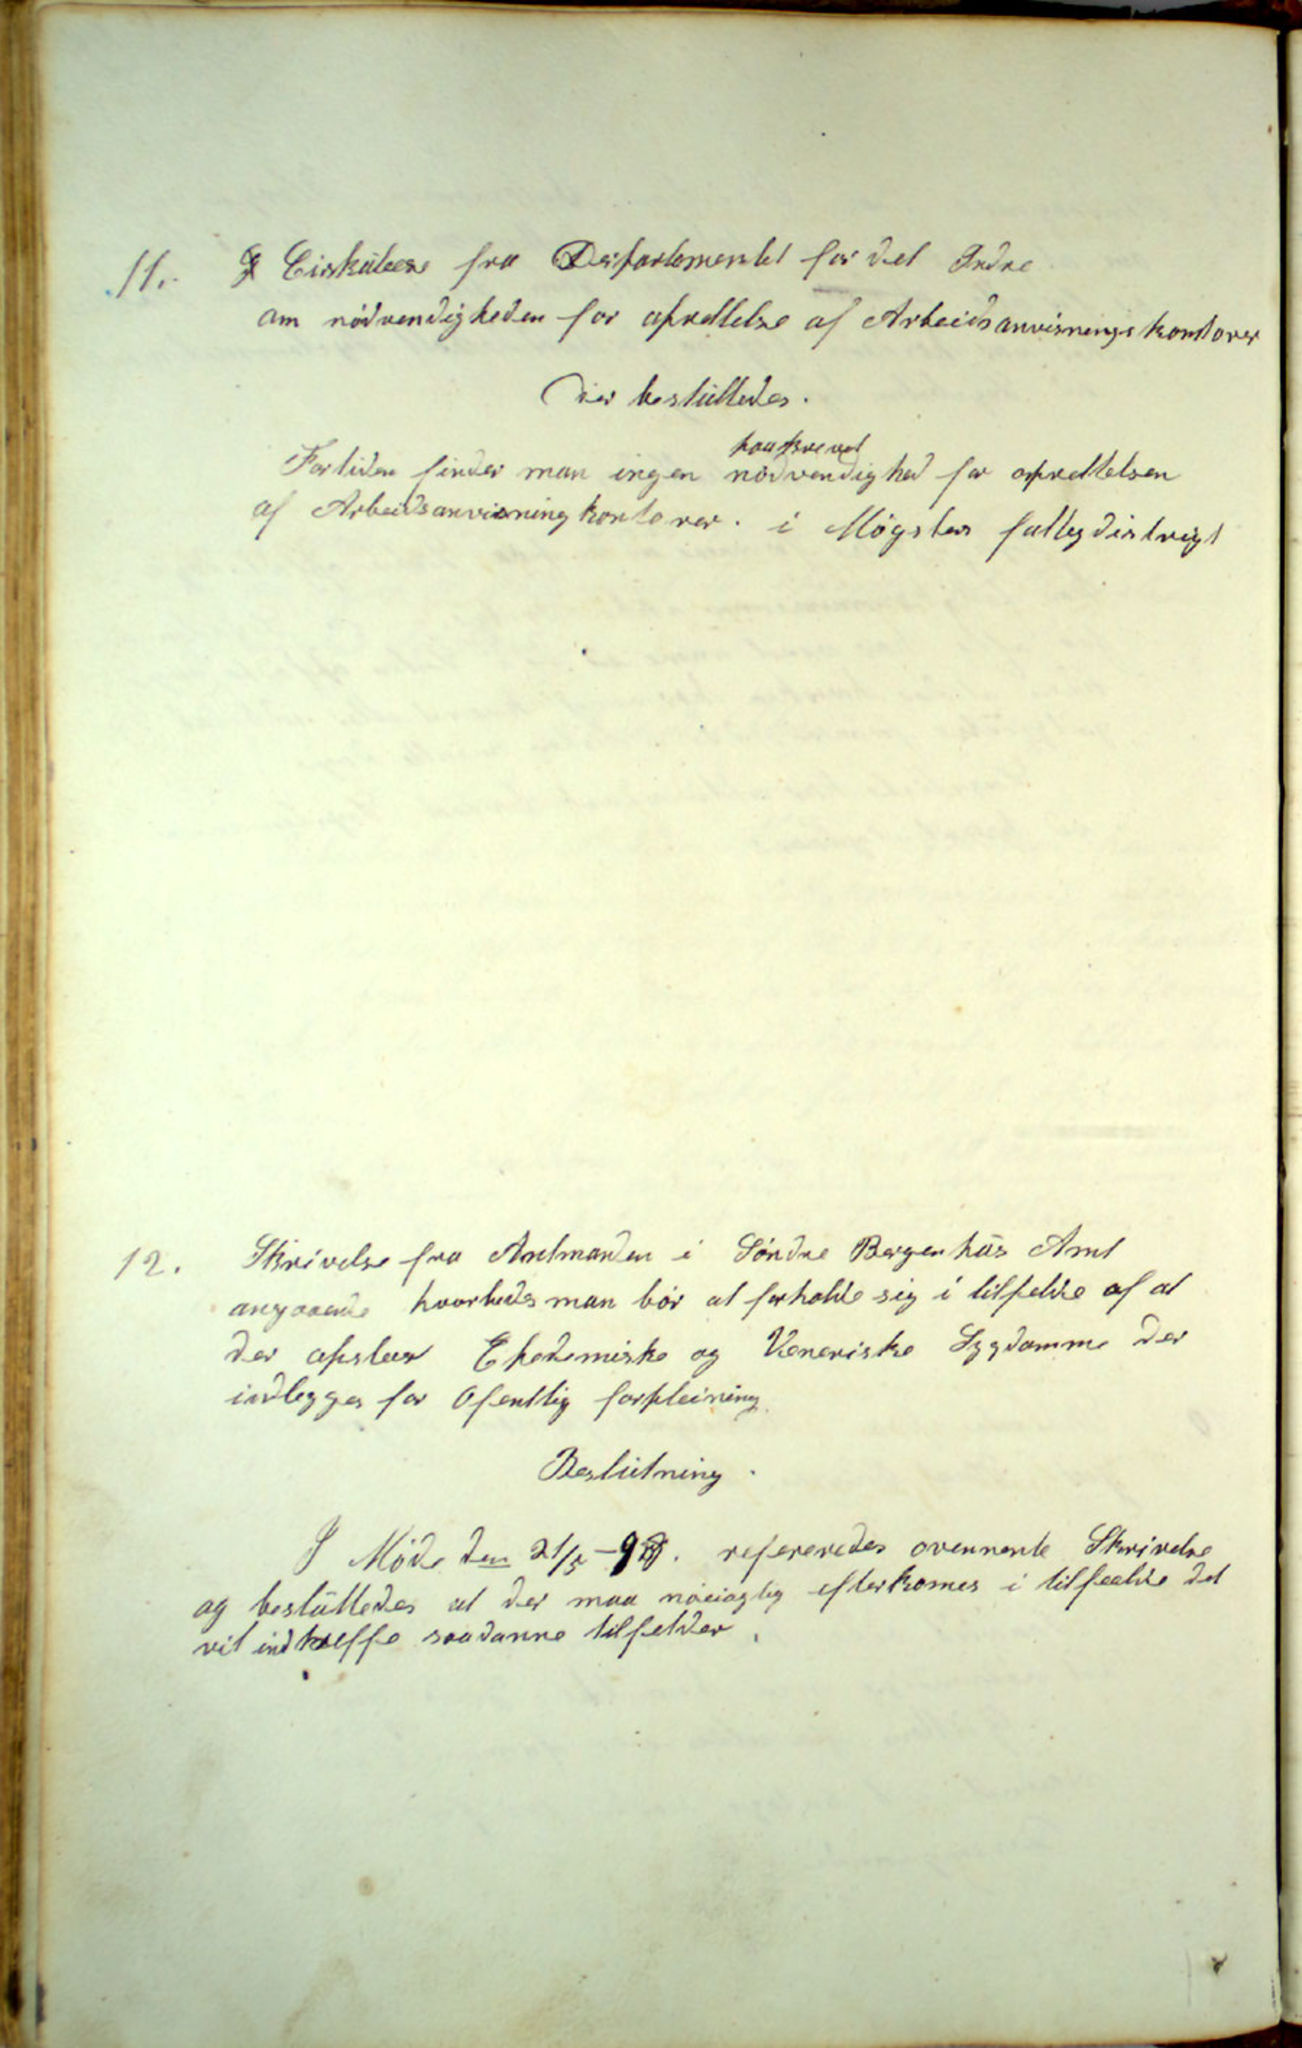 11. Cirkulære fra Departementet for det Indre
om nödvendigheden for oprettelse af Arbeidsanvisningskontorer
Der beslüttedes.
paakrevet
Fortiden finder man ingen nödvendighed for oprettelsen
af Arbeidsanvisningkontorer. i Møgster fattigdistrigt
12. Skrivelse fra Amtmanden i Söndre Bergenhüs Amt
angaaende hvorledes man bör at forholde sig i tilfelde af at
der opstaar Epedemiske og Veneriske Sygdomme der
indlegges for Ofentlig forpleining.
Beslütning.
I Möde den 21/5 - 9 . refereredes ovennente Skrivelse
og beslüttedes at der maa nöeiagtig efterkomes i tilfælde det
vil indtreffe saadanne tilfelder.